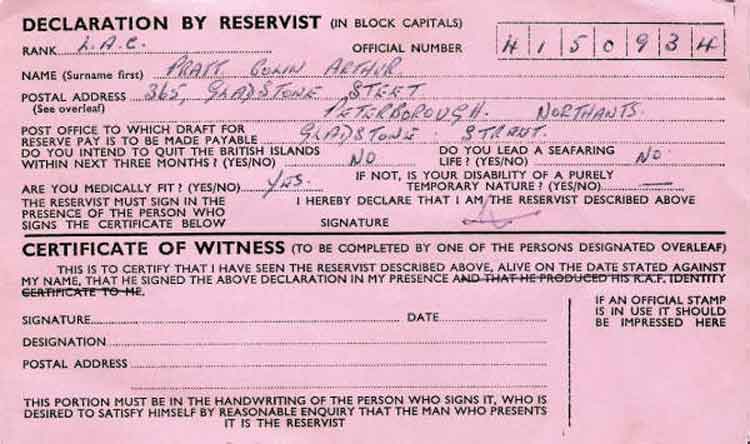 DECLARATION BY RESERVIST (IN BLOCK CAPITALS)
RANK L.A.C. OFFICIAL NUMBER 4150934
NAME (Surname first) PRATT COLIN ARTHUR.
POSTAL ADDRESS 365, GLADSTONE STEET
(See overleaf) PETERBOROUGH. NORTHANTS.
POST OFFICE TO WHICH DRAFT FOR
RESERVE PAY IS TO BE MADE PAYABLE GLADSTONE STREET.
DO YOU INTEND TO QUIT THE BRITISH ISLANDS
WITHIN NEXT THREE MONTHS? (YES/NO) NO
DO YOU LEAD A SEAFARING
LIFE? (YES/NO) NO.
ARE YOU MEDICALLY FIT? (YES/NO) YES.
IF NOT, IS YOUR DISABILITY OF A PURELY
TEMPORARY NATURE? (YES/NO) —
THE RESERVIST MUST SIGN IN THE
PRESENCE OF THE PERSON WHO
SIGNS THE CERTIFICATE BELOW
I HEREBY DECLARE THAT I AM THE RESERVIST DESCRIBED ABOVE
SIGNATURE
CERTIFICATE OF WITNESS (TO BE COMPLETED BY ONE OF THE PERSONS DESIGNATED OVERLEAF)
THIS IS TO CERTIFY THAT I HAVE SEEN THE RESERVIST DESCRIBED ABOVE, ALIVE ON THE DATE STATED AGAINST
MY NAME, THAT HE SIGNED THE ABOVE DECLARATION IN MY PRESENCE AND THAT HE PRODUCED HIS R.A.F. IDENTITY
CERTIFICATE TO ME.
SIGNATURE DATE
DESIGNATION
POSTAL ADDRESS
IF AN OFFICIAL STAMP
IS IN USE IT SHOULD
BE IMPRESSED HERE
THIS PORTION MUST BE IN THE HANDWRITING OF THE PERSON WHO SIGNS IT, WHO IS
DESIRED TO SATISFY HIMSELF BY REASONABLE ENQUIRY THAT THE MAN WHO PRESENTS
IT IS THE RESERVIST